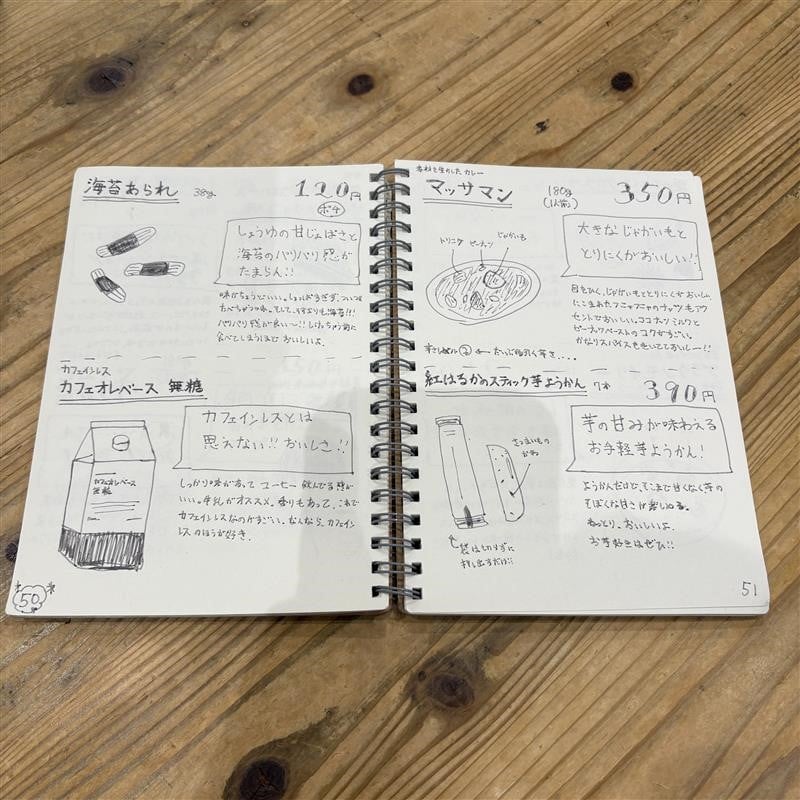 海苔あられ 38g 120円
ポチ
しょうゆの甘じょぱさと
海苔のバリバリ感が
たまらん!!
味がちょうどいい。しょっぱすぎず、ついつい
たべちゃう味。そして、何よりも海苔!!!
バリバリ感が良い〜!! しけっちゃう前に
食べてしまうほどおいしいよ。
カフェインレス
カフェオレベース 無糖
カフェインレスとは
思えない!! おいしさ!!
カフェオレベース
無糖
しっかり味があって コーヒー飲んでる感が
いい。牛乳がオススメ。香りもあって、これで
カフェインレスなのがすごい。なんなら、カフェイン
レスのほうが好き。
50
素材を生かしたカレー
マッサマン 180g (1人前) 350円
トリニク ピーナッツ じゃがいも
大きなじゃがいもと
とりにくがおいしい!!
目をひく、じゃがいもととりにくがおいしい。
にこまれたフニャフニャのナッツもア
クセントでおいしい。ココナツミルクと
ピーナッツペーストのコクがすごい。
かなりスパイスもきいてておいしー!!
辛さレベル ② ← だいぶ
紅はるかのスティック芋ようかん 7本 390円
さつまいもの
かわ
芋の甘みが味わえる
お手軽芋ようかん!
ようかんだけど、そこまで甘くなく芋の
そぼくな甘さが楽しめる。
ねっとり。おいしいよ。
お芋好きはぜひ!!
袋は切らずに
押し出すだけ!!
51